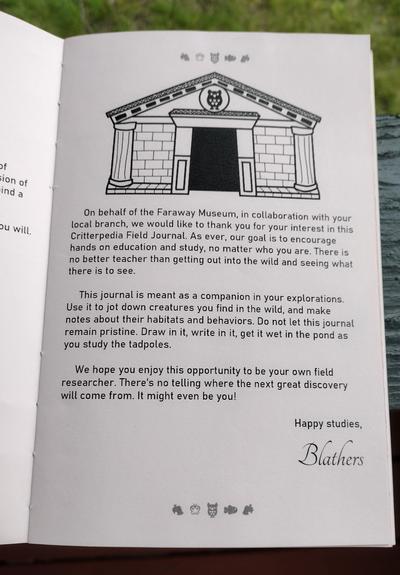 of
sion of
ind a
ou will.
On behalf of the Faraway Museum, in collaboration with your
local branch, we would like to thank you for your interest in this
Critterpedia Field Journal. As ever, our goal is to encourage
hands on education and study, no matter who you are. There is
no better teacher than getting out into the wild and seeing what
there is to see.
This journal is meant as a companion in your explorations.
Use it to jot down creatures you find in the wild, and make
notes about their habitats and behaviors. Do not let this journal
remain pristine. Draw in it, write in it, get it wet in the pond as
you study the tadpoles.
We hope you enjoy this opportunity to be your own field
researcher. There's no telling where the next great discovery
will come from. It might even be you!
Happy studies,
Blathers